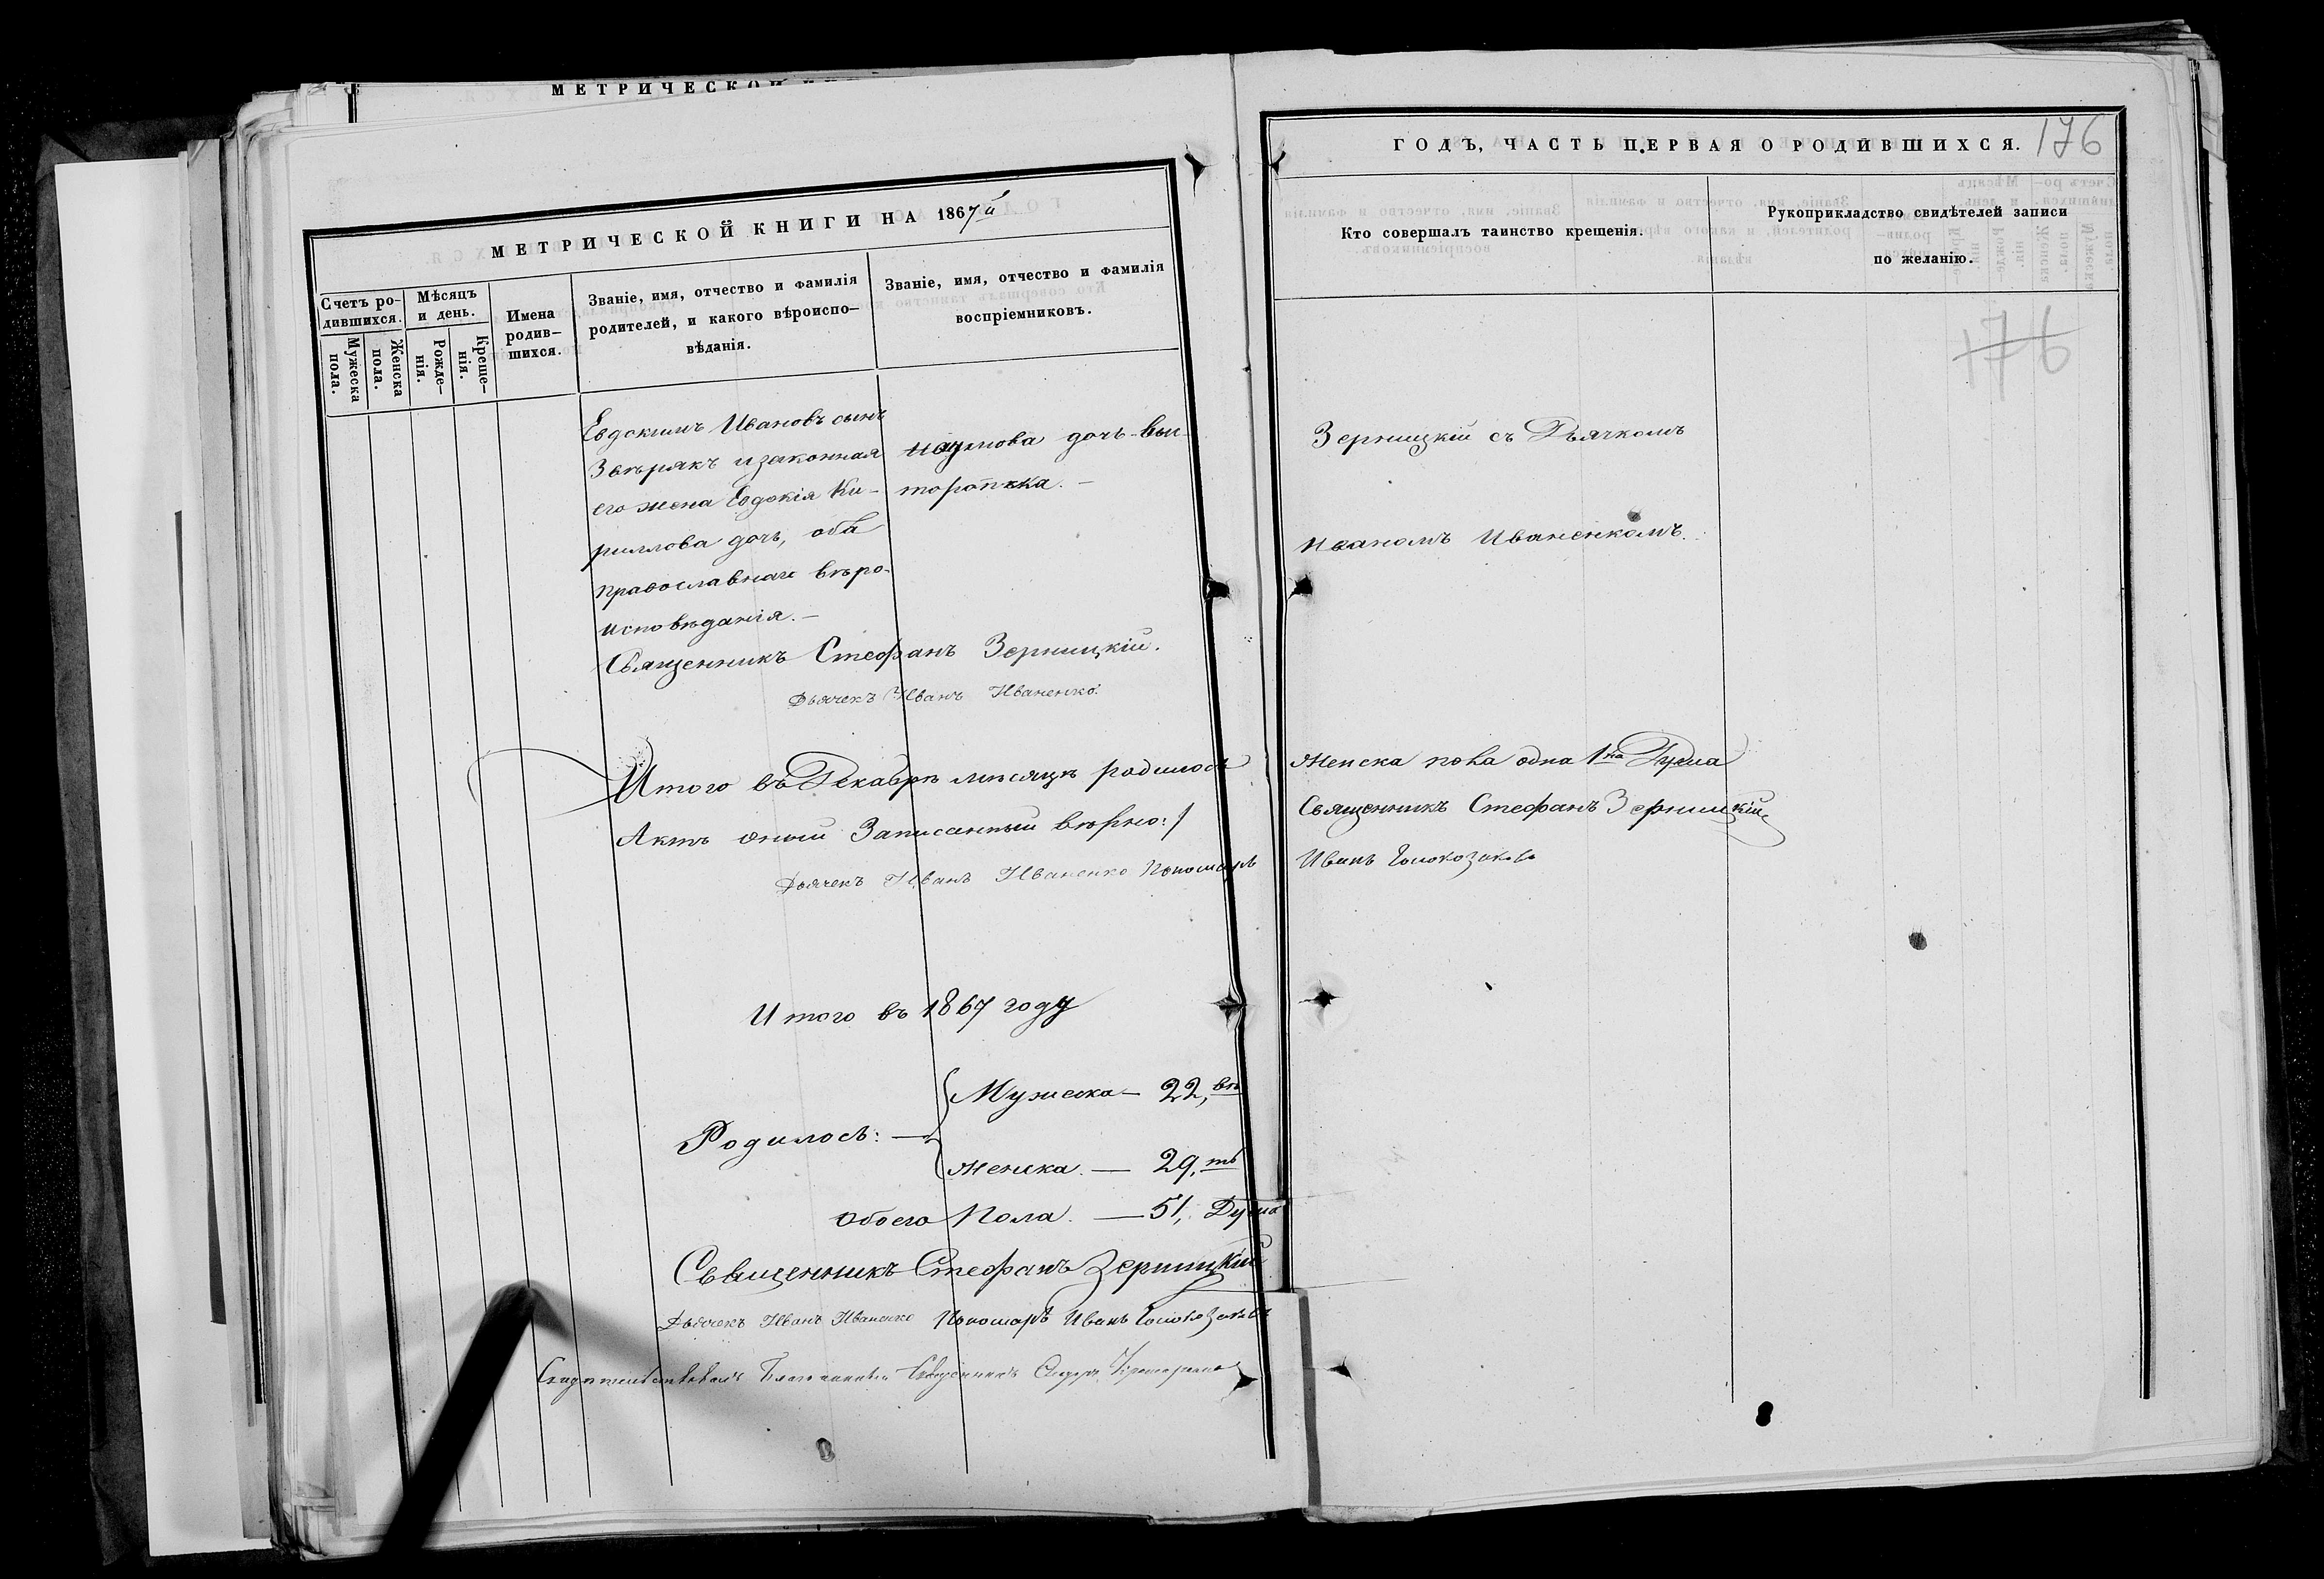 МЕТРИЧЕСКОЙ
МЕТРИЧЕСКОЙ КНИГИ НА 1867й
Счетъ ро-
дившихся.
Мужеска
пола.
Женска
пола.
Мѣсяцъ
и день.
Рожде-
нія.
Креще-
нія.
Имена
родив-
шихся.
Званіе, имя, отчество и фамилія
родителей, и какого вѣроиспо-
вѣданія.
Званіе, имя, отчество и фамилія
воспріемниковъ.
Евдокимъ Ивановъ сынъ
Звѣрякъ и законная
его жена Евдокія Ки-
риллова дочь, оба
православнаго вѣро-
исповѣданія.—
Наумова дочь
Священникъ Стефанъ Зерницкій.
Дьячекъ Иванъ Иваненко
Итого въ Декабрѣ мѣсяцѣ родилось
Актъ оный Записанный вѣрно:
Дьячекъ Иванъ Иваненко Пономарь
Итого въ 1867 году
Родилось:
Мужеска — 22,
Женска — 29,
Обоего Пола. — 51, Душа
Священникъ Стефанъ Зерницкій
Дьячекъ Иванъ Иваненко Пономарь Иванъ
Благочинный Священникъ
ГОДЪ, ЧАСТЬ ПЕРВАЯ О РОДИВШИХСЯ.
176
Кто совершалъ таинство крещенія.
Рукоприкладство свидѣтелей записи
по желанію.
176
Зерницкій съ Дьячкомъ
Иваномъ Иваненкомъ.
Женска пола одна 1на Душа
Священникъ Стефанъ Зерницкій
Иванъ